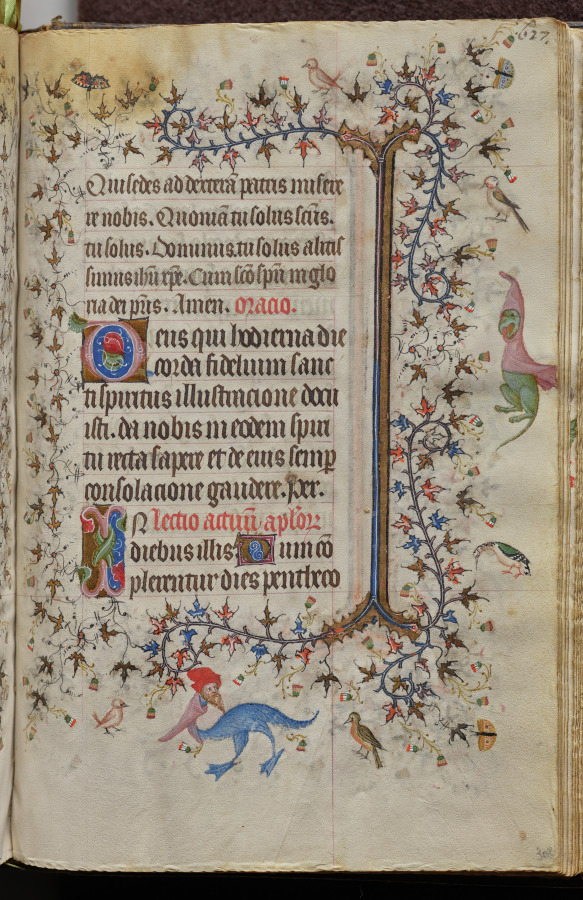 627
Qui sedes ad dexterā patris misere
re nobis. Quoniā tu solus scūs.
tu solus. Dominus. tu solus altis
simus ihū xp̄e. Cum scō spū in glo
ria dei pr̄is. Amen. oracio.
Deus qui hodierna die
corda fidelium sanc
ti spiritus illustracione docu
isti. da nobis in eodem spiri
tu recta sapere et de eius semp
consolacione gaudere. Per.
In lectio actuū ap̄lorꝝ
diebus illis. Cum cō
plerentur dies pentheco